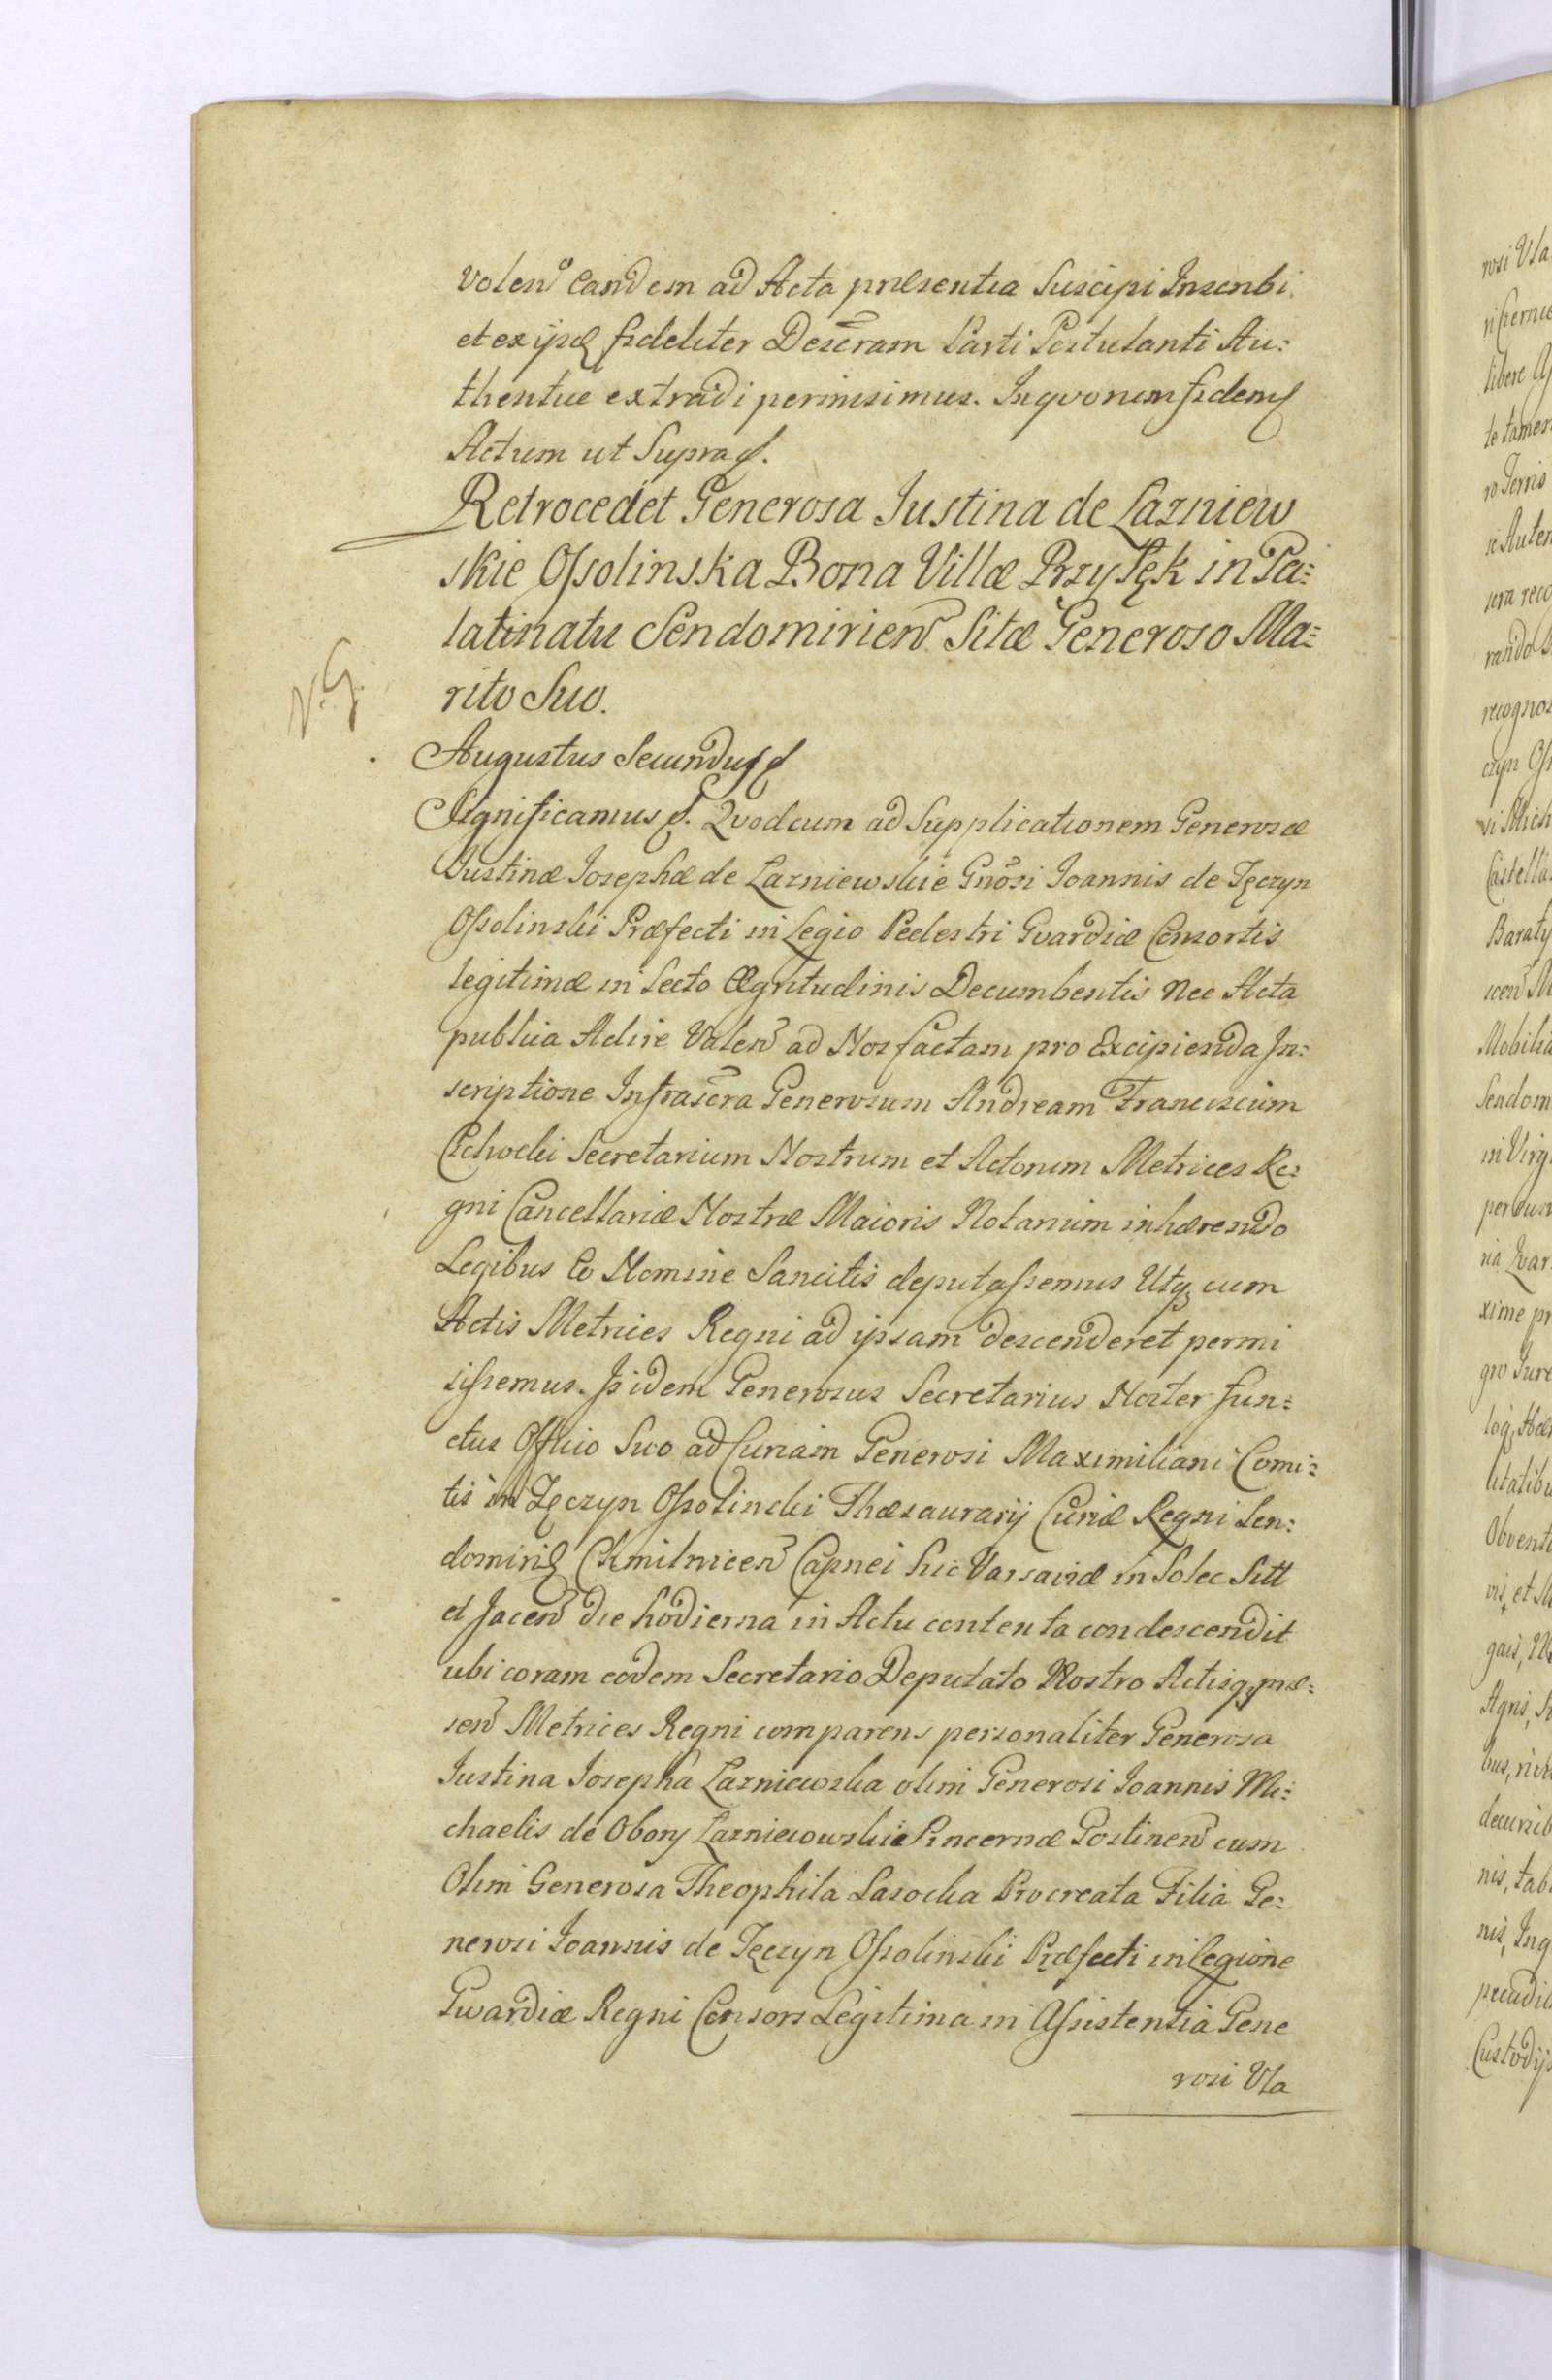 volen̄ Eandem ad Acta præsentia Suscipi Inscribi
et ex ijsd fideliter Descr̄am Parti Postulanti Au:
thentice extradi permisimus. In quorum fidem
Actum ut Supra
Retrocedet Generosa Justina de Lazniew
skie Ossolinska Bona Villæ Przyłęk in Pa:
latinatu Sendomirien̄ Sitæ Generoso Ma:
rito Suo.
N. G.
Augustus Secundus
Significamus Quod cum ad Supplicationem Generosæ
Justinæ Josephæ de Lazniewskie Gnōsi Joannis de Tęczyn
Ossolinski Præfecti in Legio Pedestri Gvardiæ Consortis
legitimæ in Lecto Ægritudinis Decumbentis Nec Acta
publica Adire Valen̄ ad Nos factam pro Excipienda In:
scriptione Infrascr̄a Generosum Andream Franciscum
Cichocki Secretarium Nostrum et Actorum Metrices Re:
gni Cancellariæ Nostræ Maioris Notarium inhærendo
Legibus Eo Nomine Sancitis deputassemus Utq cum
Actis Metrices Regni ad ipsam descenderet permi
sissemus. Is idem Generosus Secretarius Noster fun:
ctus Officio Suo ad Curiam Generosi Maximiliani Comi:
tis in Tęczyn Ossolinski Thæsaurarij Curiæ Regni Sen:
domirien Chmilnicen̄ Capnei hic Varsaviæ in Solec Sitt
et Jacen̄ die hodierna in Actu contenta condescendit
ubi coram eodem Secretario Deputato Nostro Actisq præ:
sen̄ Metrices Regni comparens personaliter Generosa
Justina Josepha Lazniewska olim Generosi Joannis Mi:
chaelis de Obory Lazniewowskie Pincernæ Gostinen̄ cum
Olim Generosa Theophila Lasocka Procreata Filia Ge:
nerosi Joannis de Tęczyn Ossolinski Præfecti in Legione
Gwardiæ Regni Consors Legitima in Assistentia Gene
rosi Vla